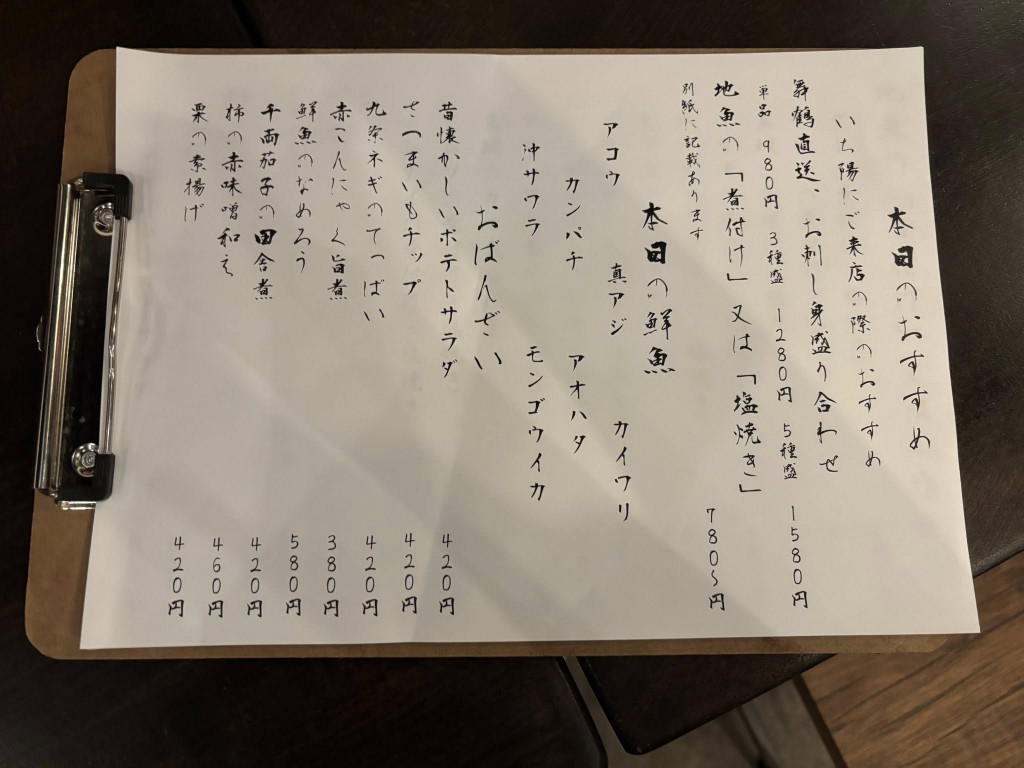 本日のおすすめ
いち陽にご来店の際のおすすめ
舞鶴直送、お刺し身盛り合わせ
単品 980円 3種盛 1280円 5種盛 1580円
地魚の「煮付け」又は「塩焼き」 780～円
別紙に記載あります
本日の鮮魚
アコウ 真アジ カイワリ
カンパチ アオハタ
沖サワラ モンゴウイカ
おばんざい
昔懐かしいポテトサラダ 420円
さつまいもチップ 420円
九条ネギのてっぱい 420円
赤こんにゃく旨煮 380円
鮮魚のなめろう 580円
千両茄子の田舎煮 420円
柿の赤味噌和え 460円
栗の素揚げ 420円